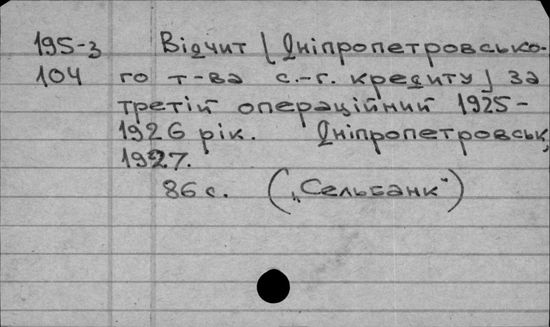 195-3 Відчит [Дніпропетровсько-
104 го т-ва с.-г. кредиту] за
третій операційний 1925-
1926 рік. Дніпропетровськ,
1927.
86 с. („Сельбанк")